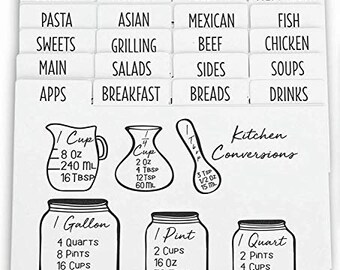 PASTA ASIAN MEXICAN FISH
SWEETS GRILLING BEEF CHICKEN
MAIN SALADS SIDES SOUPS
APPS BREAKFAST BREADS DRINKS
1 Cup
8 Oz
240 ML
16 TBSP
1/4
Cup
2 Oz
4 TBSP
12 TSP
60 ML
1 TBSP
3 TSP
1/2 OZ
15 ML
Kitchen
Conversions
1 Gallon
4 Quarts
8 Pints
16 Cups
1 Pint
2 Cups
16 Oz
1 Quart
2 Pints
4 Cups